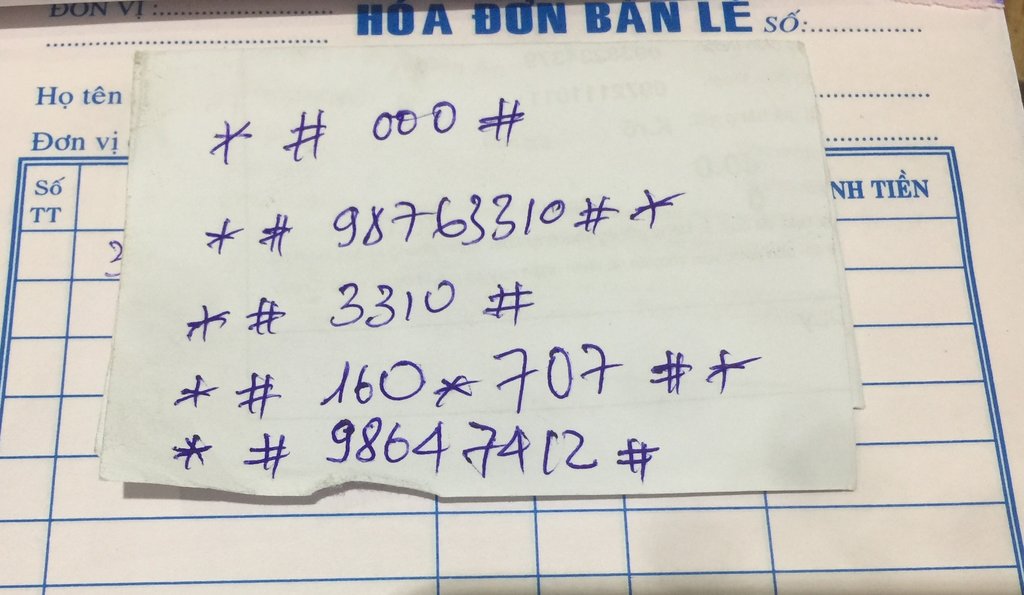 ĐƠN VỊ :
HÓA ĐƠN BÁN LẺ SỐ:
Họ tên
Đơn vị
Số TT
NH TIỀN
* # 000 #
* # 98763310 # *
* # 3310 #
* # 160 * 707 # *
* # 98647412 #